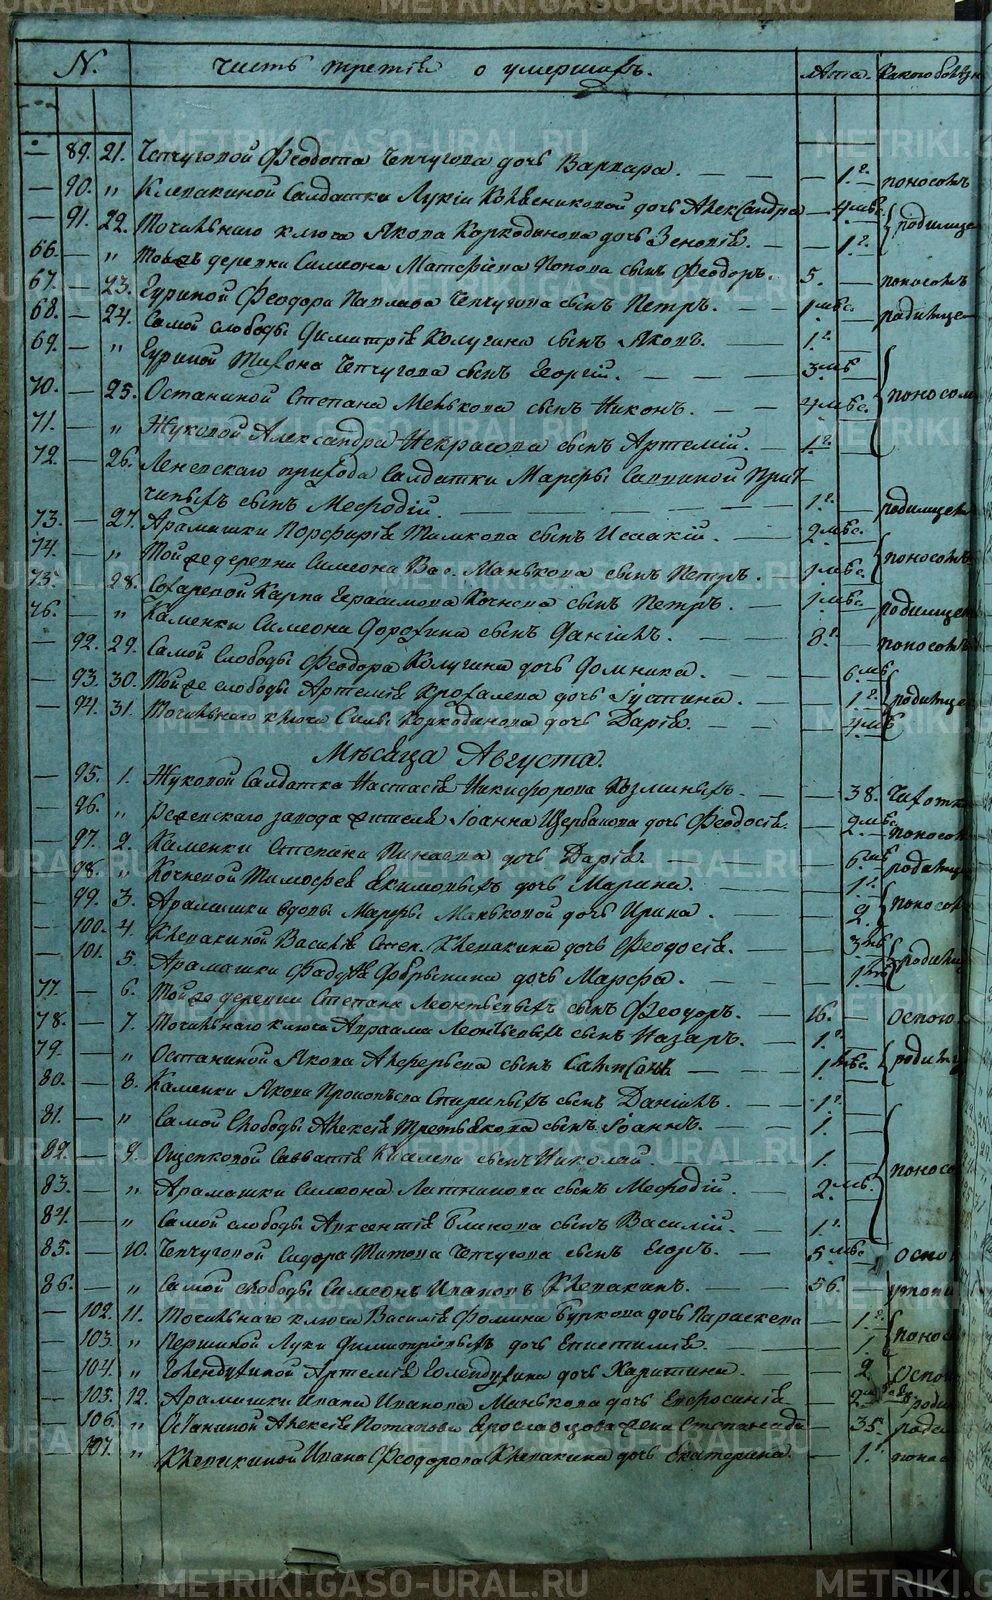 N. Часть третія о умершихъ. Лѣта. Какого болѣзн
— 89. 21. Чепчуговой Феодота Чепчугова дочь Варвара. — — — 1.г. поносомъ
— 90. „ Клепакиной Салдатки Лукіи дочь Александра — 4 мѣс.
— 91. 22. Точильнаго ключа Якова Коркодинова дочь Зеновія. — — 1.г. родимцем
66. — „ Той деревни Симеона Матѳіева Попова сынъ Феодоръ. 5. — поносомъ
67. — 23. Гуриной Феодора Павлова Чепчугова сынъ Петръ. — — 1 мѣс. — родимце
68. — 24. Самой слободы Димитрія Колугина сынъ Яковъ. — — 1.г.
69. — „ Гуриной Тихона Чепчугова сынъ Георгій. — — — 3 мѣс
70. — 25. Останиной Степана Менькова сынъ Никонъ. — — 4 мѣс. поносом
71. — „ Жуковой Александра Некрасова сынъ Артемій. — 1.г.
72. — 26. Леневскаго прихода Салдатки Марѳы
сынъ Меѳодій. — — — — — 1.г. родимцем
73. — 27. Арамашки Порфирія Тимкова сынъ Исаакій. — 2 мѣс.
74. — „ Той же деревни Симеона Вас. Манькова сынъ Петръ. — мѣс. поносомъ
75. — 28. Сохаревой Карпа Герасимова Кочнева сынъ Петръ. — 1 мѣс. — родимцем
76. — „ Каменки Симеона Дорохина сынъ Даніилъ. — — 8г. — поносомъ
— 92. 29. Самой слободы Феодора Колугина дочь Домника. — — 6 мѣс
— 93. 30. Той же слободы Артемія Крохалева дочь Іустина. — — 1.г. родимце
— 94. 31. Точильнаго ключа Силы Коркодинова дочь Дарія. — — 4 мѣс
Мѣсяца Августа.
— 95. 1. Жуковой Салдатка Настасія Никифорова Козминыхъ. — — 38. Чихотк
— 96. „ Режевскаго завода жителя Іоанна Щербакова дочь Феодосія. — 2 мѣс. поносом
— 97. 2. Каменки Степана Пинаева дочь Дарія. — — — 6 мѣс родимц
— 98. „ Кочневой Тимофея Екимовыхъ дочь Марина. — — — 1.г.
— 99. 3. Арамашки вдовы Марѳы Маньковой дочь Ирина. — — 2. поносо
— 100. 4. Клепакиной Василія Степ. Клепакина дочь Феодосія. — — 3 мѣс
— 101. 5. Арамашки Фаддея дочь Марѳа. — — родимц
77. — 6. Той же деревни Степана Леонтьевыхъ сынъ Феодоръ. — 16. — Оспою.
78. — 7. Точильнаго ключа Авраама Леонтьевыхъ сынъ Назаръ. — 1.г.
79. — „ Останиной Якова Алферьева сынъ Сампсонъ — — 1. мѣс. родимц
80. — 8. Каменки Якова Прокопьева Спиричевыхъ сынъ Даніилъ. — 1.г.
81. — „ Самой Слободы Алексія Третьякова сынъ Іоаннъ. — — 1.
82. — 9. Ощепковой Савватія Киселева сынъ Николай. — — 1. поносо
83. — „ Арамашки Симеона Латникова сынъ Меѳодій. — — 2. мѣс.
84. — „ Самой слободы Авксентія Блинова сынъ Василій. — 1.г.
85. — 10. Чепчуговой Сидора Титова Чепчугова сынъ Егоръ. — 5 мѣс. осп
86. — „ Самой слободы Симеонъ Ивановъ Клепакинъ. — — 56. утопи
— 102. 11. Точильнаго ключа Василія Фомина Буркова дочь Параскева — 1.г.
— 103. „ Першиной Луки Димитріевыхъ дочь Епистимія. — — 1. понос
— 104. „ Голендухиной Артемія Голендухина дочь Харитина. — — 2. Оспо
— 105. 12. Арамашки Ивана Иванова Манькова дочь Евфросинія. — 2 родим
— 106. „ Останиной Алексія Потапова Ярославцова жена Степанида — 35. роди
— 107. „ Клепикиной Ивана Феодорова Клепакина дочь Екатерина. — 1.г понос
METRIKI.GASO-URAL.RU